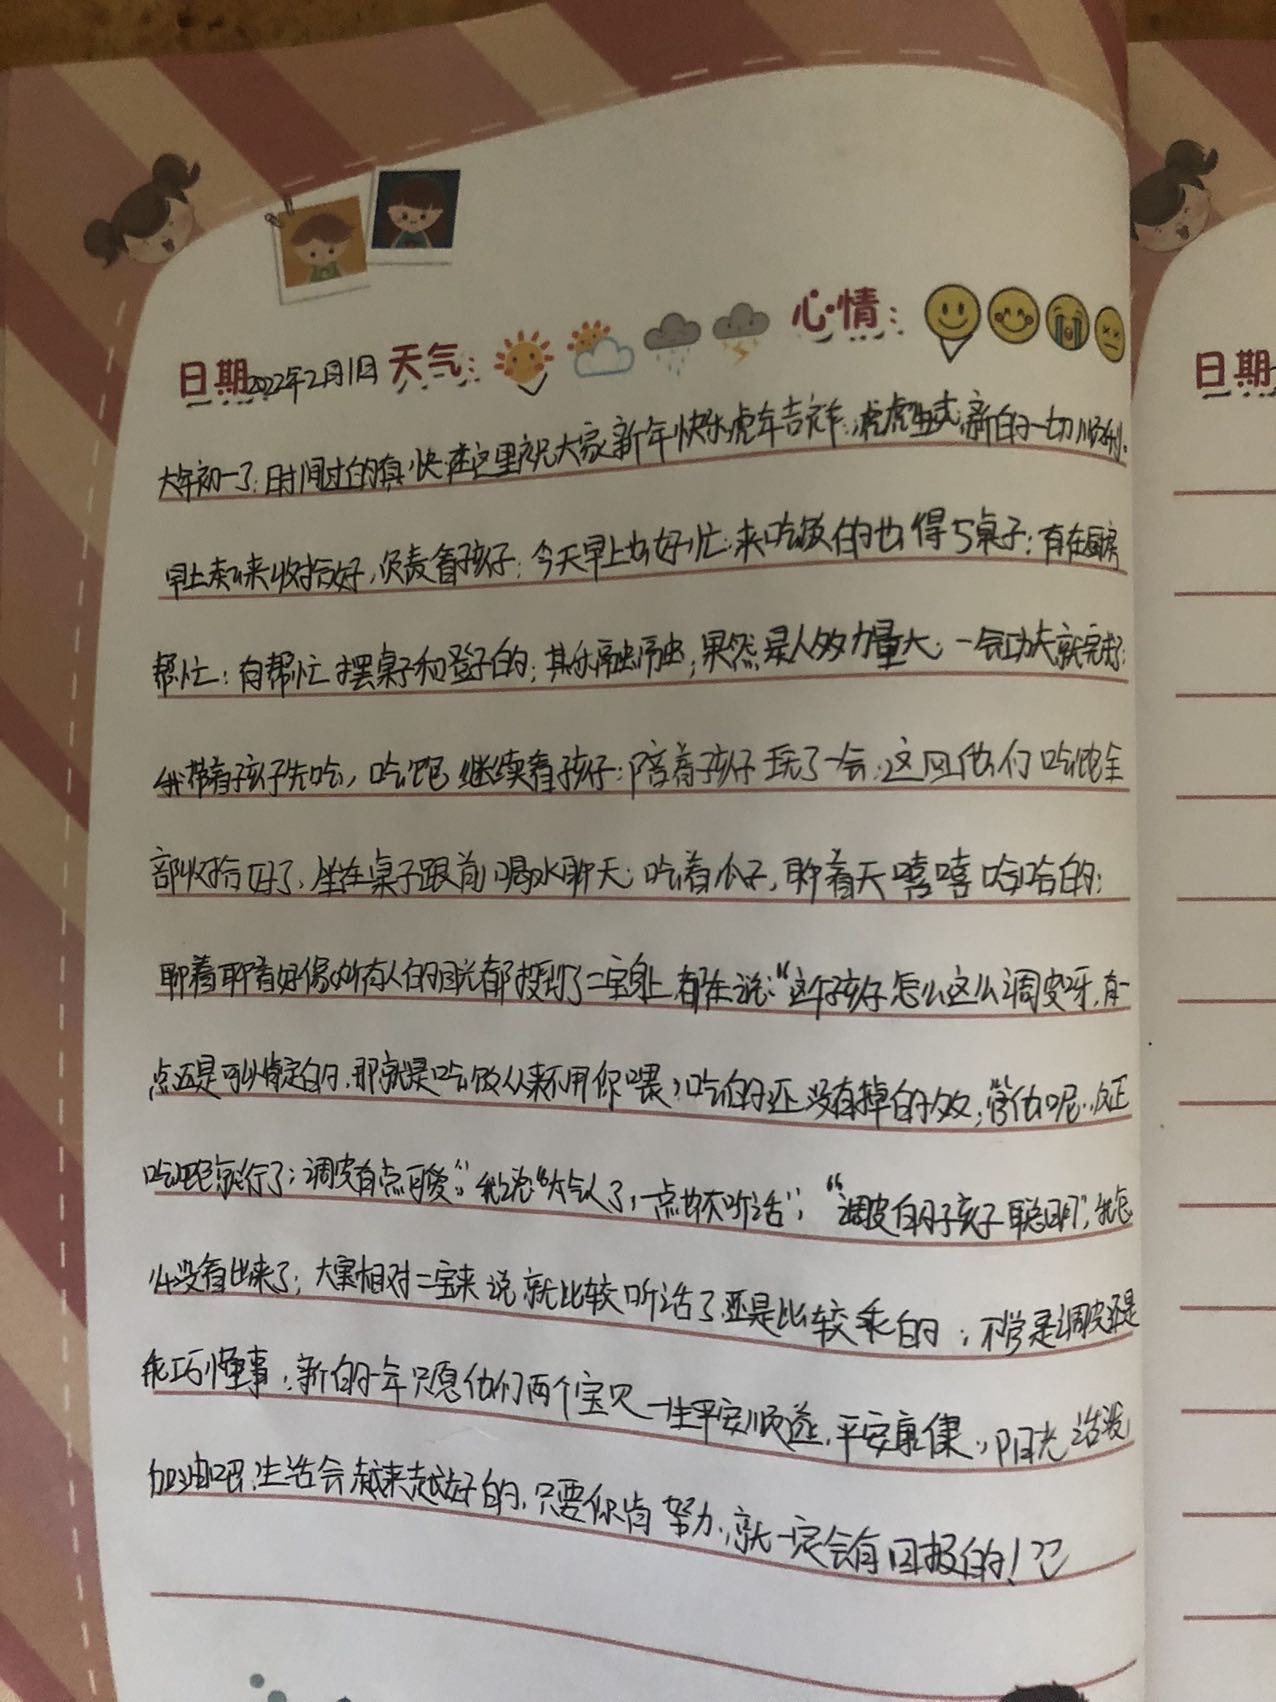 日期 2022年2月1日 天气: 心情:
大年初一了;时间过的真快;在这里祝大家新年快乐,虎年吉祥;虎虎生威;新的一切顺利.
早上起来收拾好,负责看孩子;今天早上也好忙;来吃饭的也得5桌子;有在厨房
帮忙;有帮忙摆桌子和凳子的;其乐融融;果然是人多力量大;一会功夫就完成了;
我带着孩子先吃,吃饱继续看孩子;陪着孩子玩了一会;这回他们吃饱全
部收拾好了,坐在桌子跟前喝水聊天;吃着瓜子,聊着天嘻嘻哈哈的;
聊着聊着好像所有人的目光都投到了二宝身上,都在说:“这个孩子怎么这么调皮呀,有一
点还是可以肯定的,那就是吃饭从来不用你喂,吃的还没有掉的多;管他呢,反正
吃饱就行了;调皮有点可爱”;我说“太气人了,一点也不听话”;“调皮的孩子聪明”,我怎
么没看出来了;大宝相对二宝来说就比较听话了,还是比较乖的;不管是调皮还是
乖巧懂事;新的一年只愿他们两个宝贝一生平安顺遂,平安康健,阳光活泼
加油吧;生活会越来越好的,只要你肯努力,就一定会有回报的!